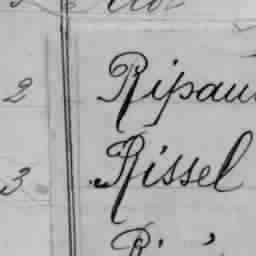 2 Ripau
3 Rissel